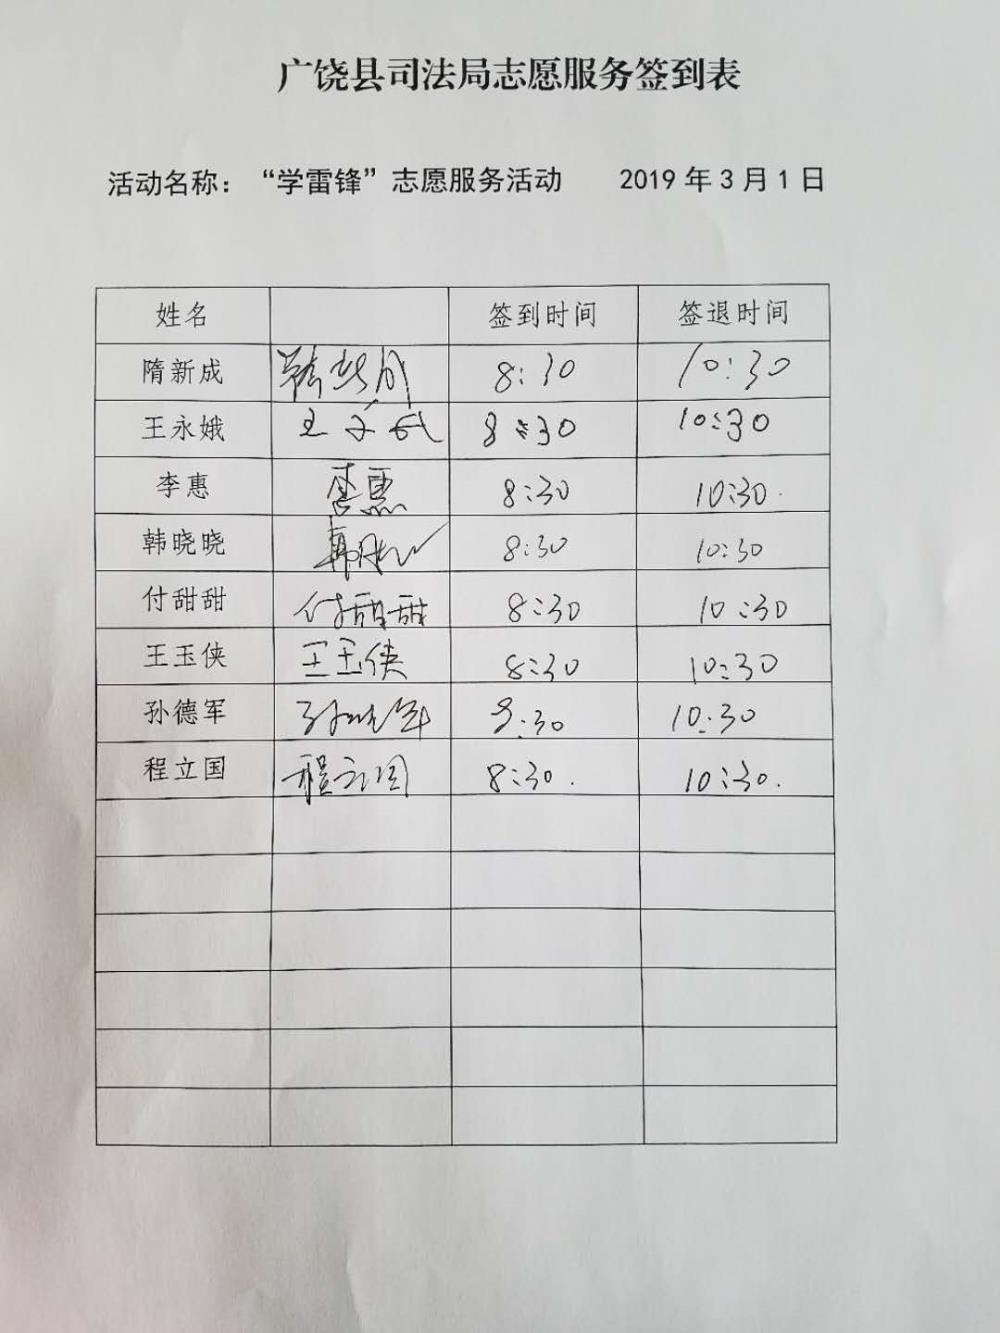 广饶县司法局志愿服务签到表
活动名称：“学雷锋”志愿服务活动 2019年3月1日
姓名 签到时间 签退时间
隋新成 8:30 10:30
王永娥 8:30 10:30
李惠 李惠 8:30 10:30.
韩晓晓 8:30 10:30
付甜甜 付甜甜 8:30 10:30
王玉侠 王玉侠 8:30 10:30
孙德军 孙德军 8:30 10:30
程立国 程立国 8:30. 10:30.